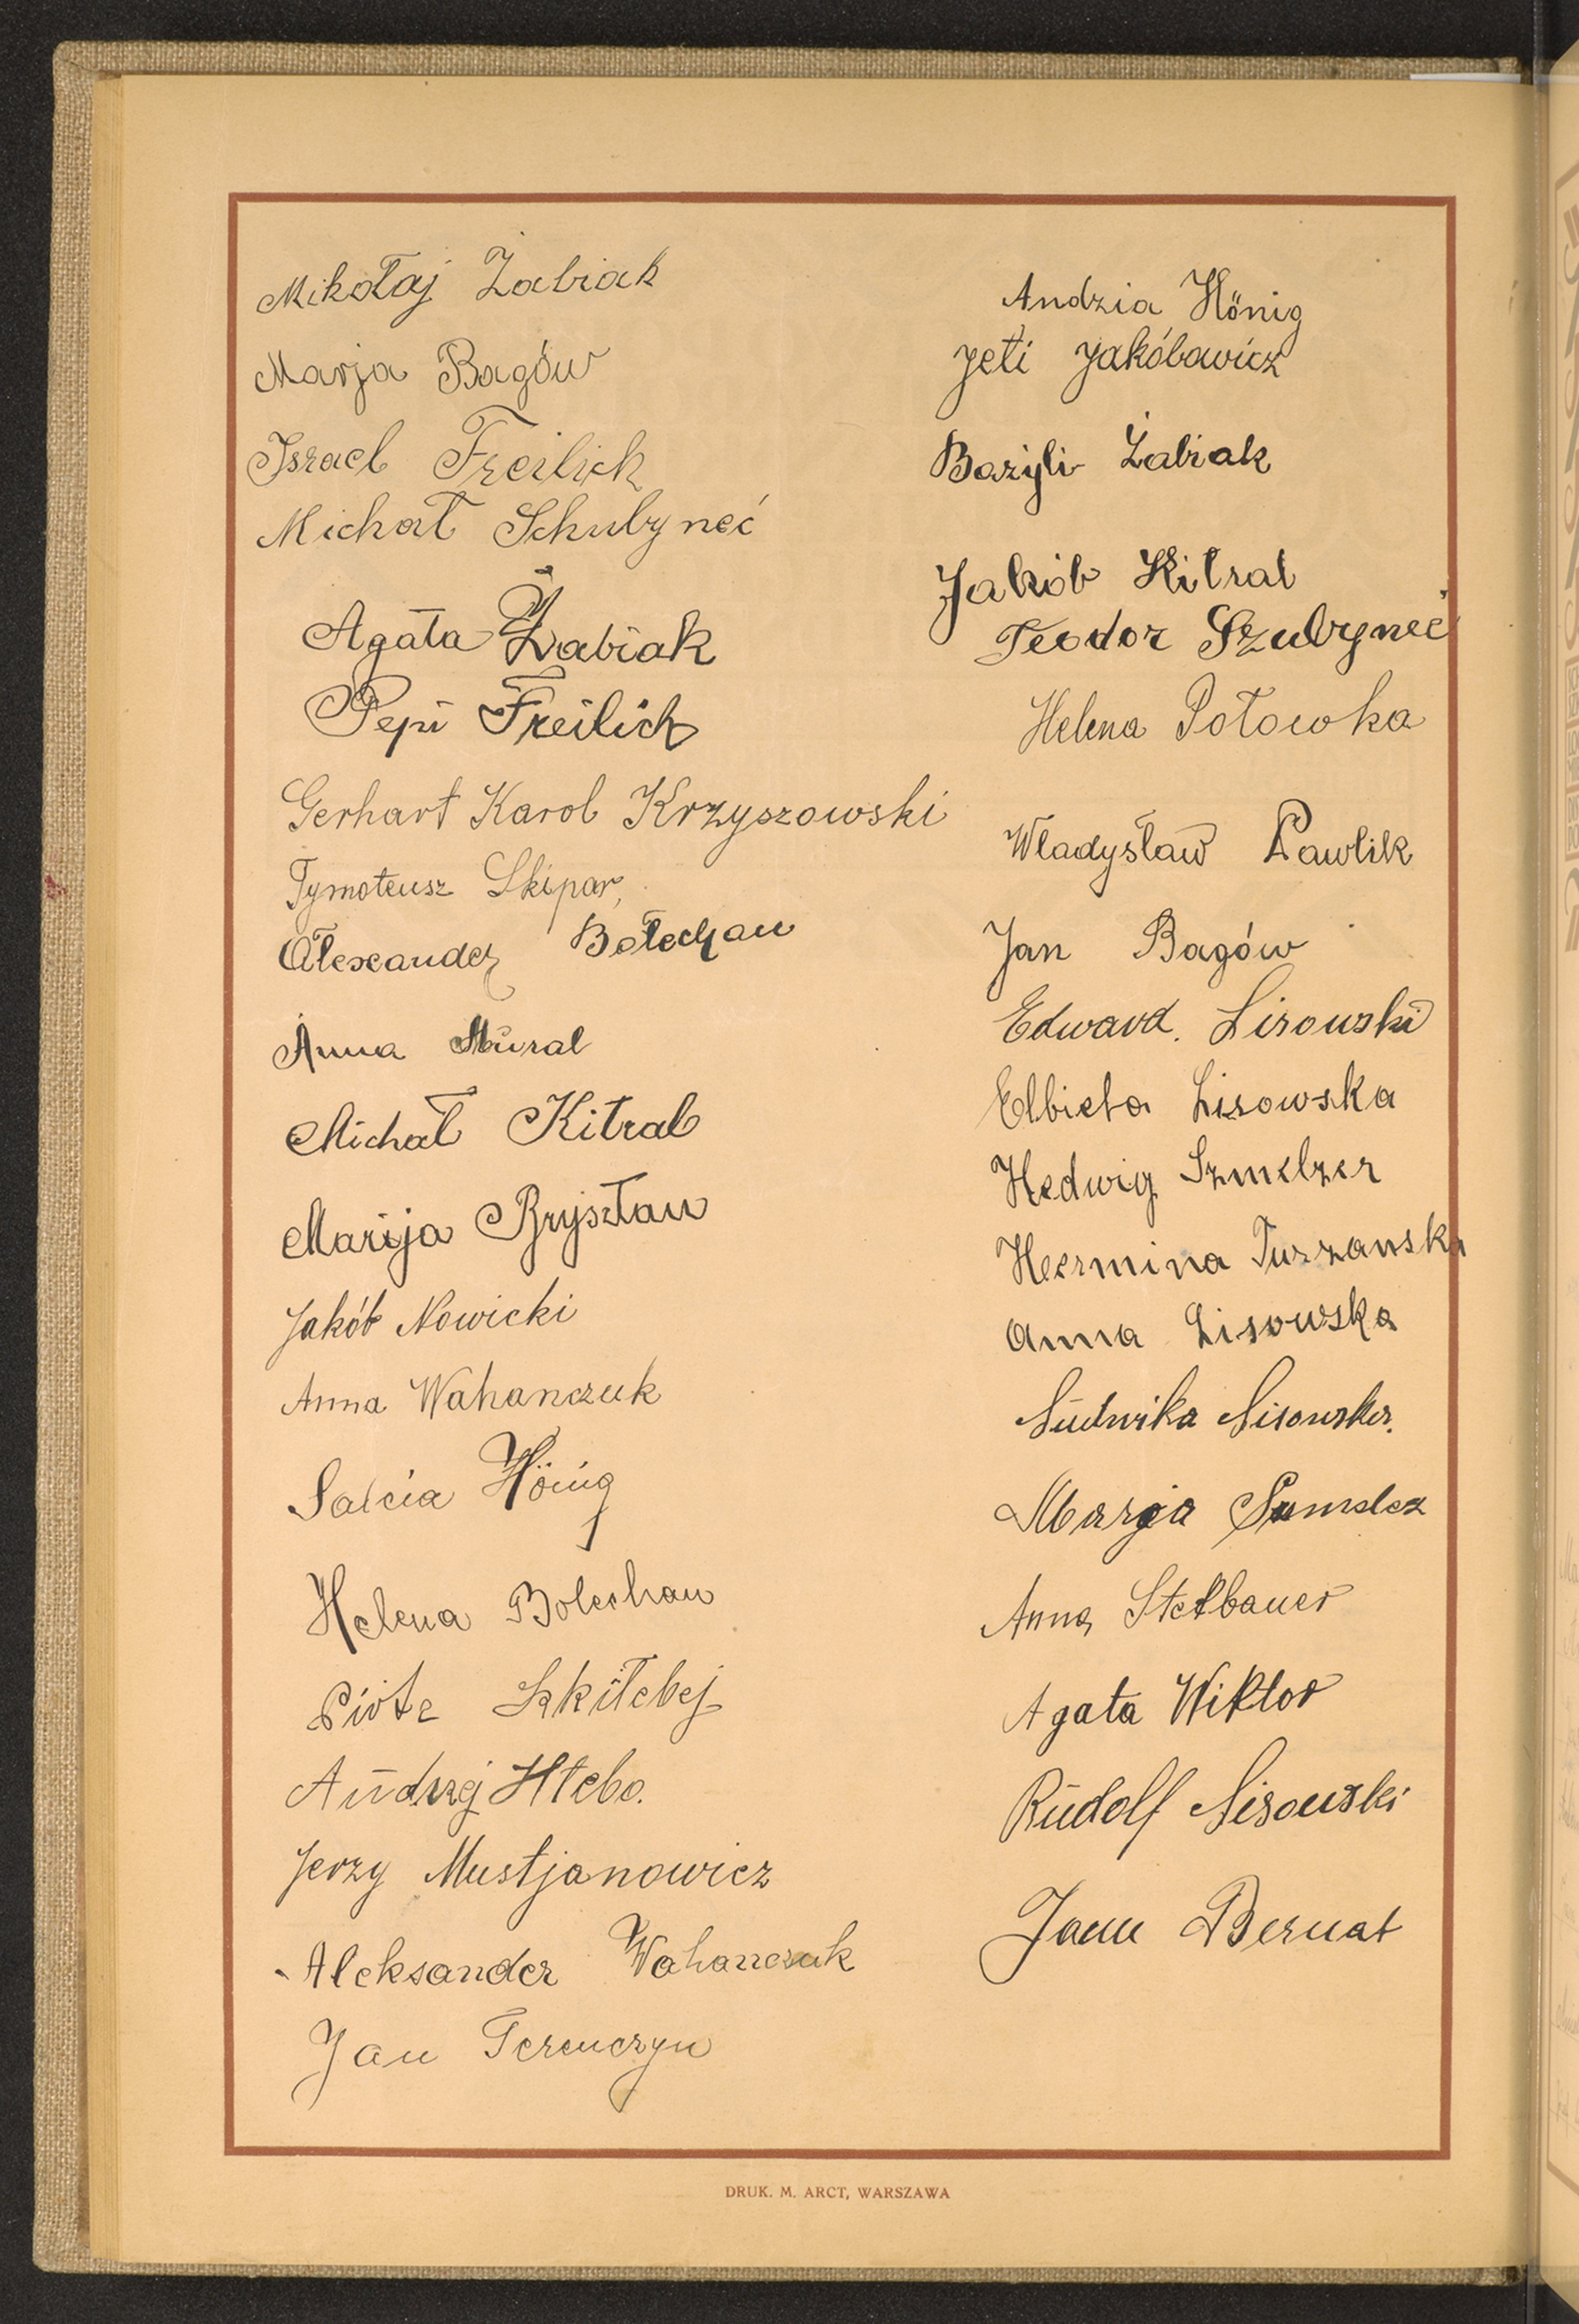 Mikołaj Żabiak
Marja Bagów
Israel Freilich
Michał Schubyneć
Agata Żabiak
Pepi Freilich
Gerhart Karol Krzyszowski
Tymoteusz Skipar,
Ałexander Bołechan
Anna Mural
Michał Kitral
Marija Brysztan
Jakób Nowicki
Anna Wahanczuk
Salcia Hönig
Helena Bolechan
Piotr Szkiłebej
Andrzej Hlebo.
Jerzy Mustjanowicz
Aleksander Wahanczuk
Jan Terenczyn
Andzia Hönig
Jeti Jakóbowicz
Bazyli Żabiak
Jakób Kitral
Teodor Szubyneć
Helena Połowka
Władysław Pawlik
Jan Bagów
Edward. Lisowski
Elbieta Lisowska
Hedwig Szmelzer
Hermina Turzanska
Anna Lisowska
Ludwika Lisowska.
Marja
Anna Stelbauer
Agata Wiktor
Rudolf Lisowski
Jann Bernat
DRUK. M. ARCT, WARSZAWA